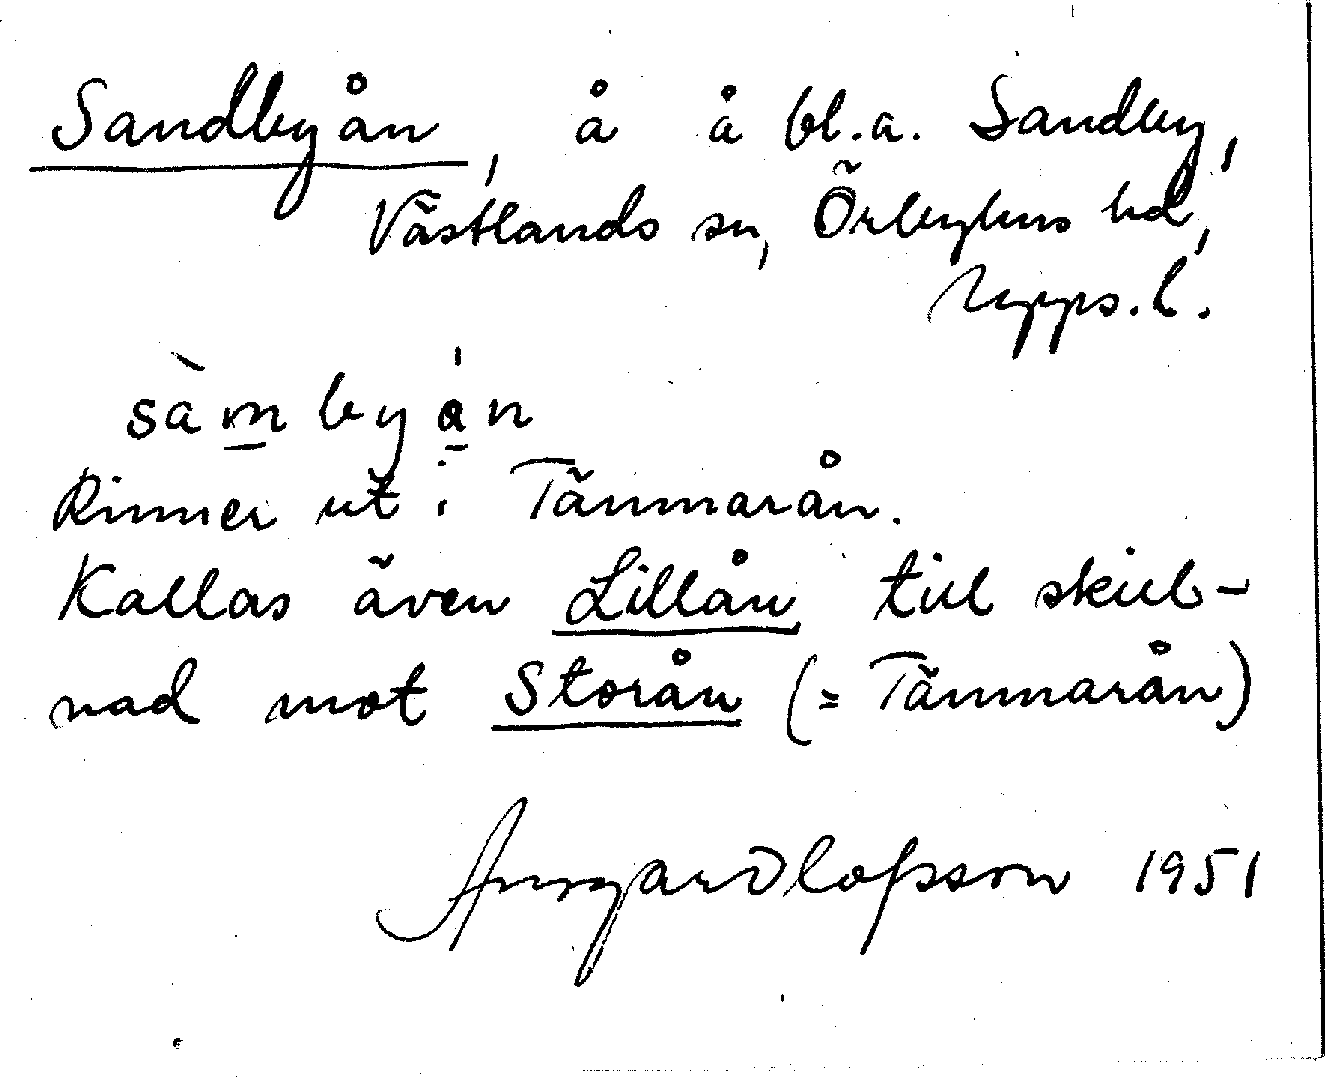 Sandbyån, å å bl.a. Sandby,
Västlands sn, Örbyhus hd,
Upps.l.
sàm byǻn
Rinner ut i Tämnarån.
Kallas även Lillån till skill-
nad mot Storån (= Tämnarån)
Olofsson 1951